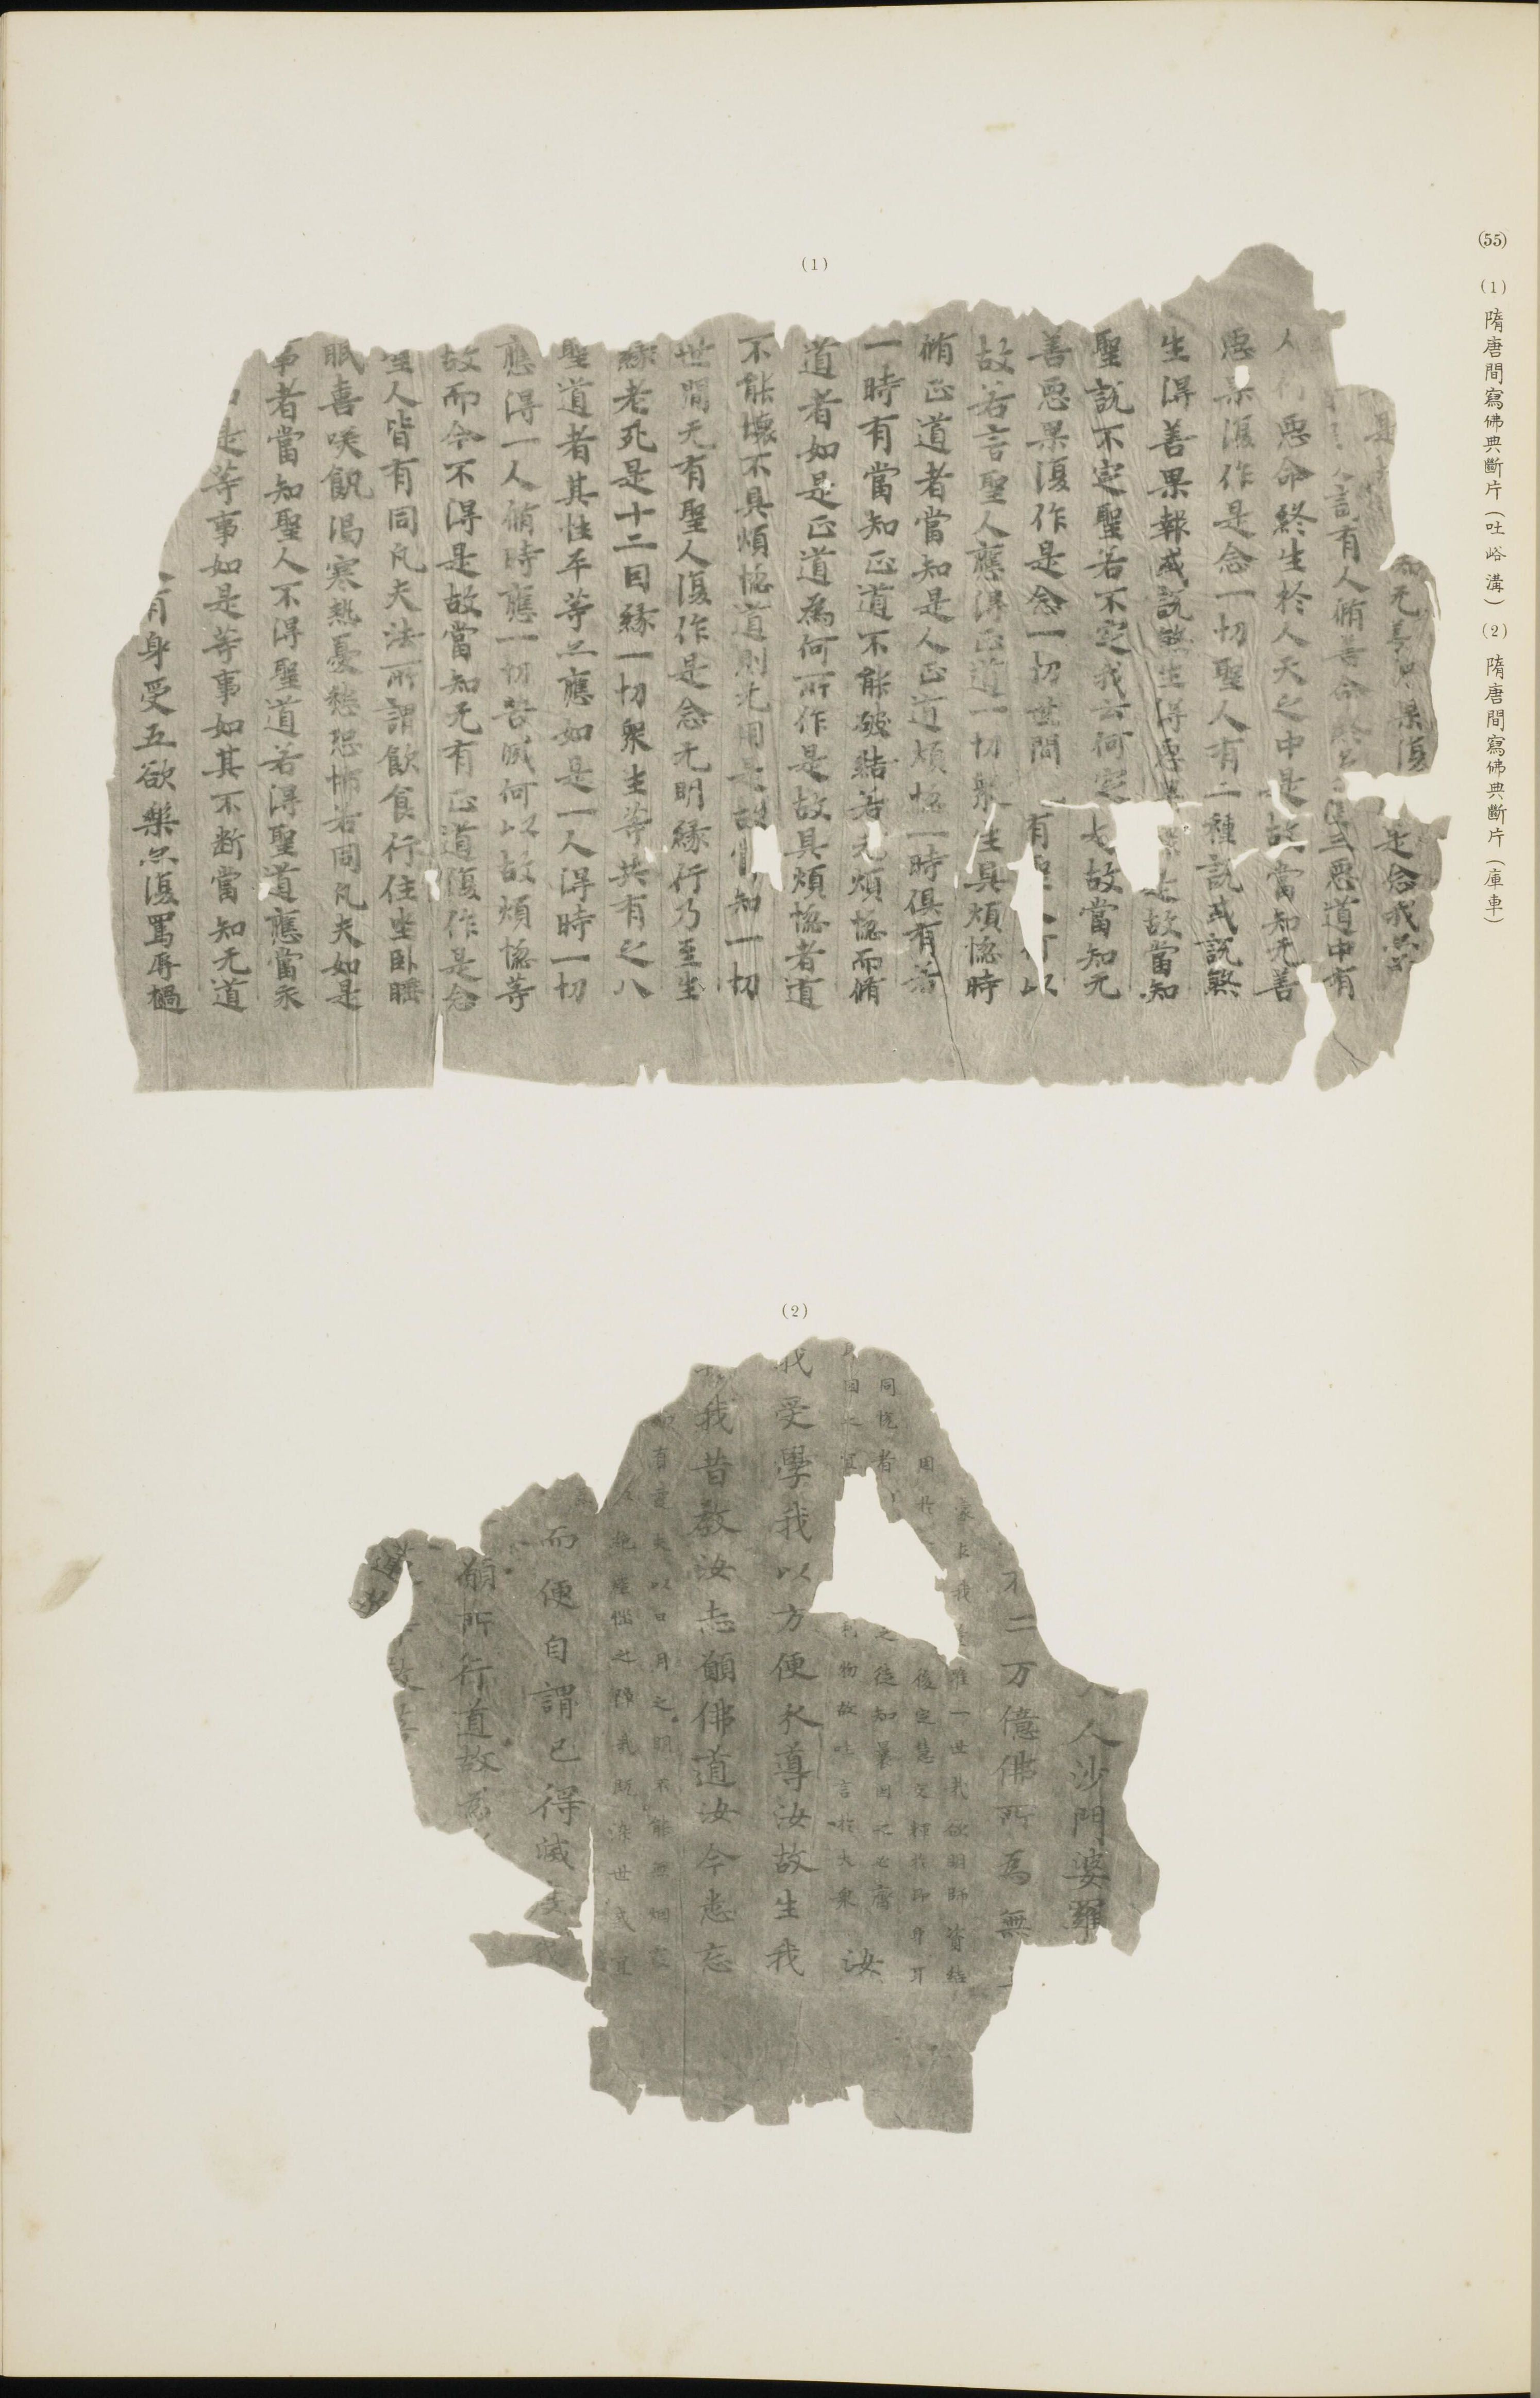 (55) (1) 隋唐間寫佛典斷片(吐峪溝) (2) 隋唐間寫佛典斷片(庫車)
(1)
是
知无善 果復 是念我
言有人脩善命終 三惡道中有
人行惡命終生於人天之中是故當知无善
惡果復作是念一切聖人有二種說或說煞
生得善果報或說煞生得惡 故當知
聖說不定聖若不定我云何定 故當知无
善惡果復作是念一切世間 有聖人何以
故若言聖人應得正道一切衆生具煩惱時
脩正道者當知是人正道煩惱一時俱有若
一時有當知正道不能破結若无煩惱而脩
道者如是正道為何所作是故具煩惱者道
不能壞不具煩惱道則无用是故 知一切
世間无有聖人復作是念无明緣行乃至生
緣老死是十二因緣一切衆生等共有之八
聖道者其性平等亦應如是一人得時一切
應得一人脩時應一切苦滅何以故煩惱等
故而今不得是故當知无有正道復作是念
聖人皆有同凡夫法所謂飲食行住坐卧睡
眠喜咲飢渴寒熱憂愁恐怖若同凡夫如是
事者當知聖人不得聖道若得聖道應當永
是等事如是等事如其不断當知无道
有身受五欲樂亦復罵辱撾
(2)
人沙門婆羅
二万億佛所為無
我 唯一世哉欲明師資結
用於 後定慧之 於即身耳
同悅者 之徒知曩因
因 宜 物故吐言於大衆 汝
我受學我以方便永導汝故生我
我昔教汝志願佛道汝今悉忘
有 夫以日月之明不能無烟
之障我既染世 宜
而便自謂已得滅度我
願所行道故為